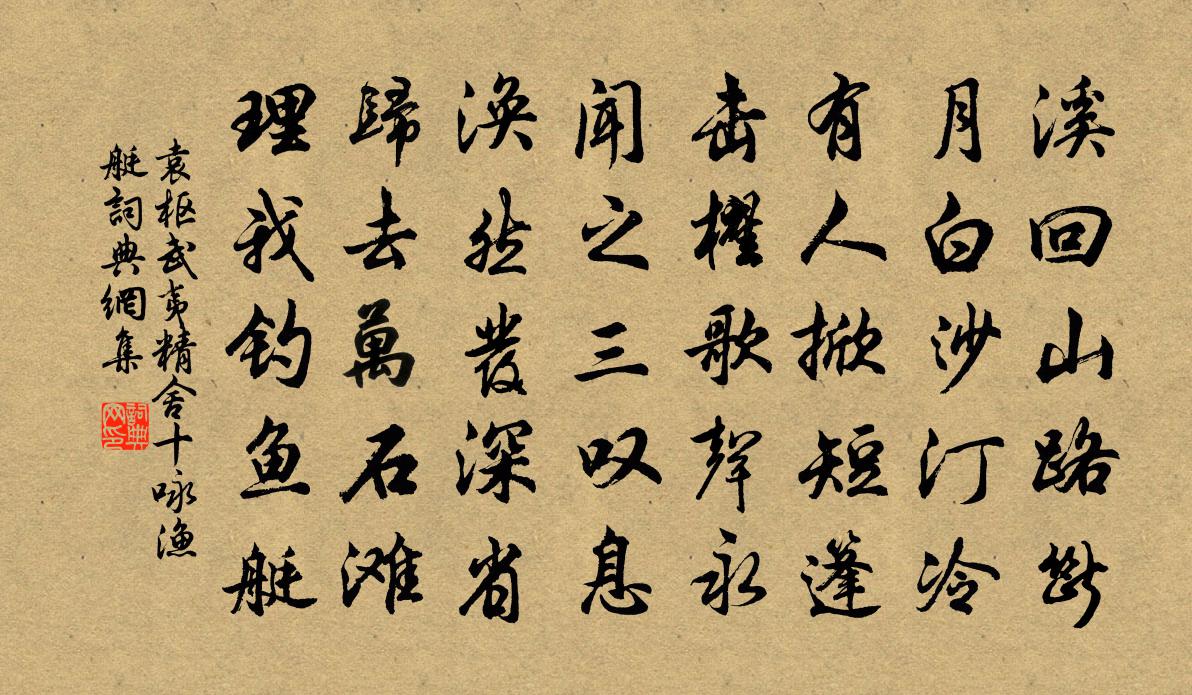 溪回山路断
月白沙汀冷
有人掀短蓬
击櫂歌聲永
闻之三叹息
涣然發深省
歸去萬石滩
理我钓鱼艇
袁枢武夷精舍十咏渔
艇詞典網集
詞典
网印